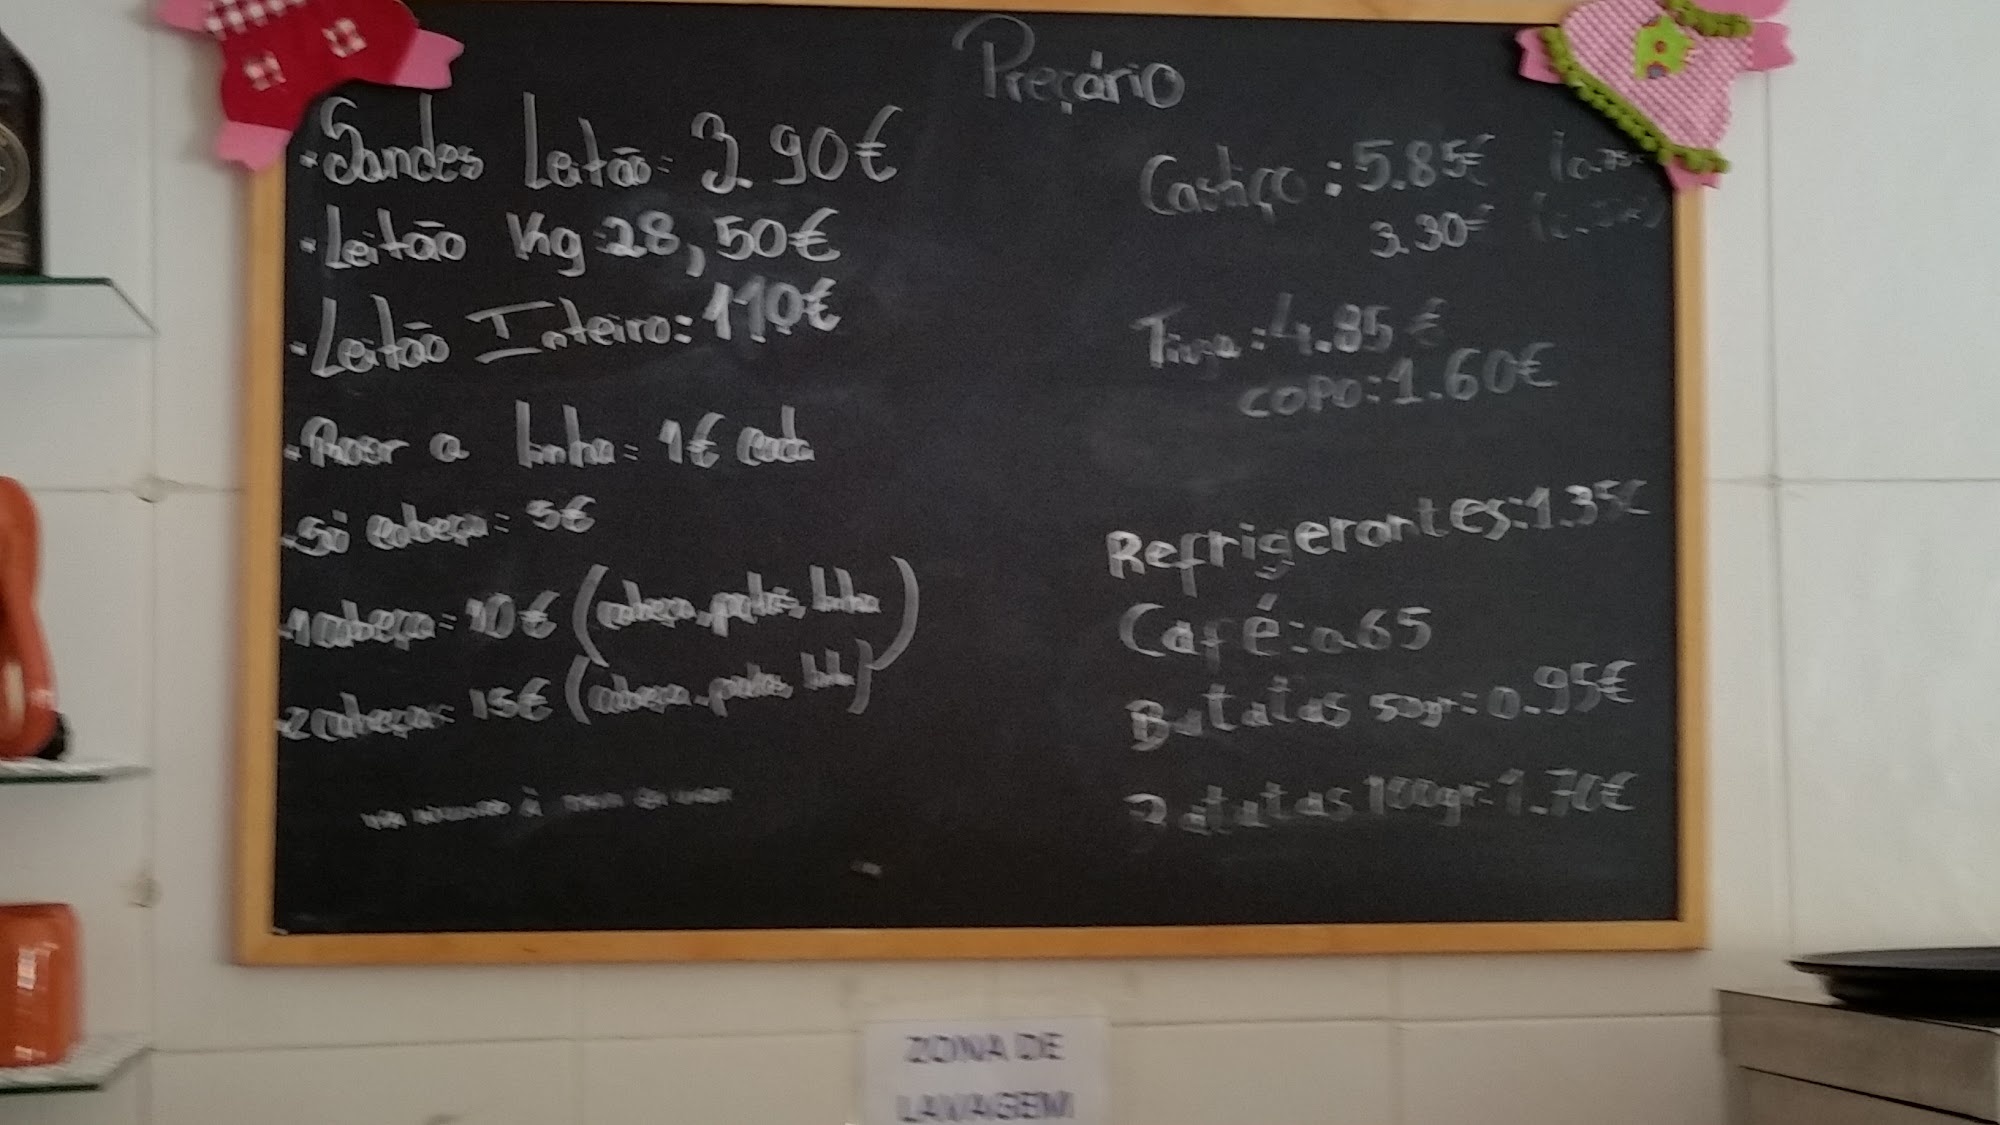 Preçário
-Sandes Leitão: 3.90€
-Leitão Kg:28,50€
-Leitão Inteiro:110€
a linha: 1€ cada
-Só cabeça: 5€
-1 cabeça= 10€ (cabeça, patas, linha)
-2 cabeças= 15€ (cabeça, patas, linha)
à
Castiço: 5.85€
3.30€
4.85€
copo:1.60€
Refrigerantes:1.35€
Café:0.65
Batatas 50gr:0.95€
Batatas 100gr:1.70€
ZONA DE
LAVAGEM